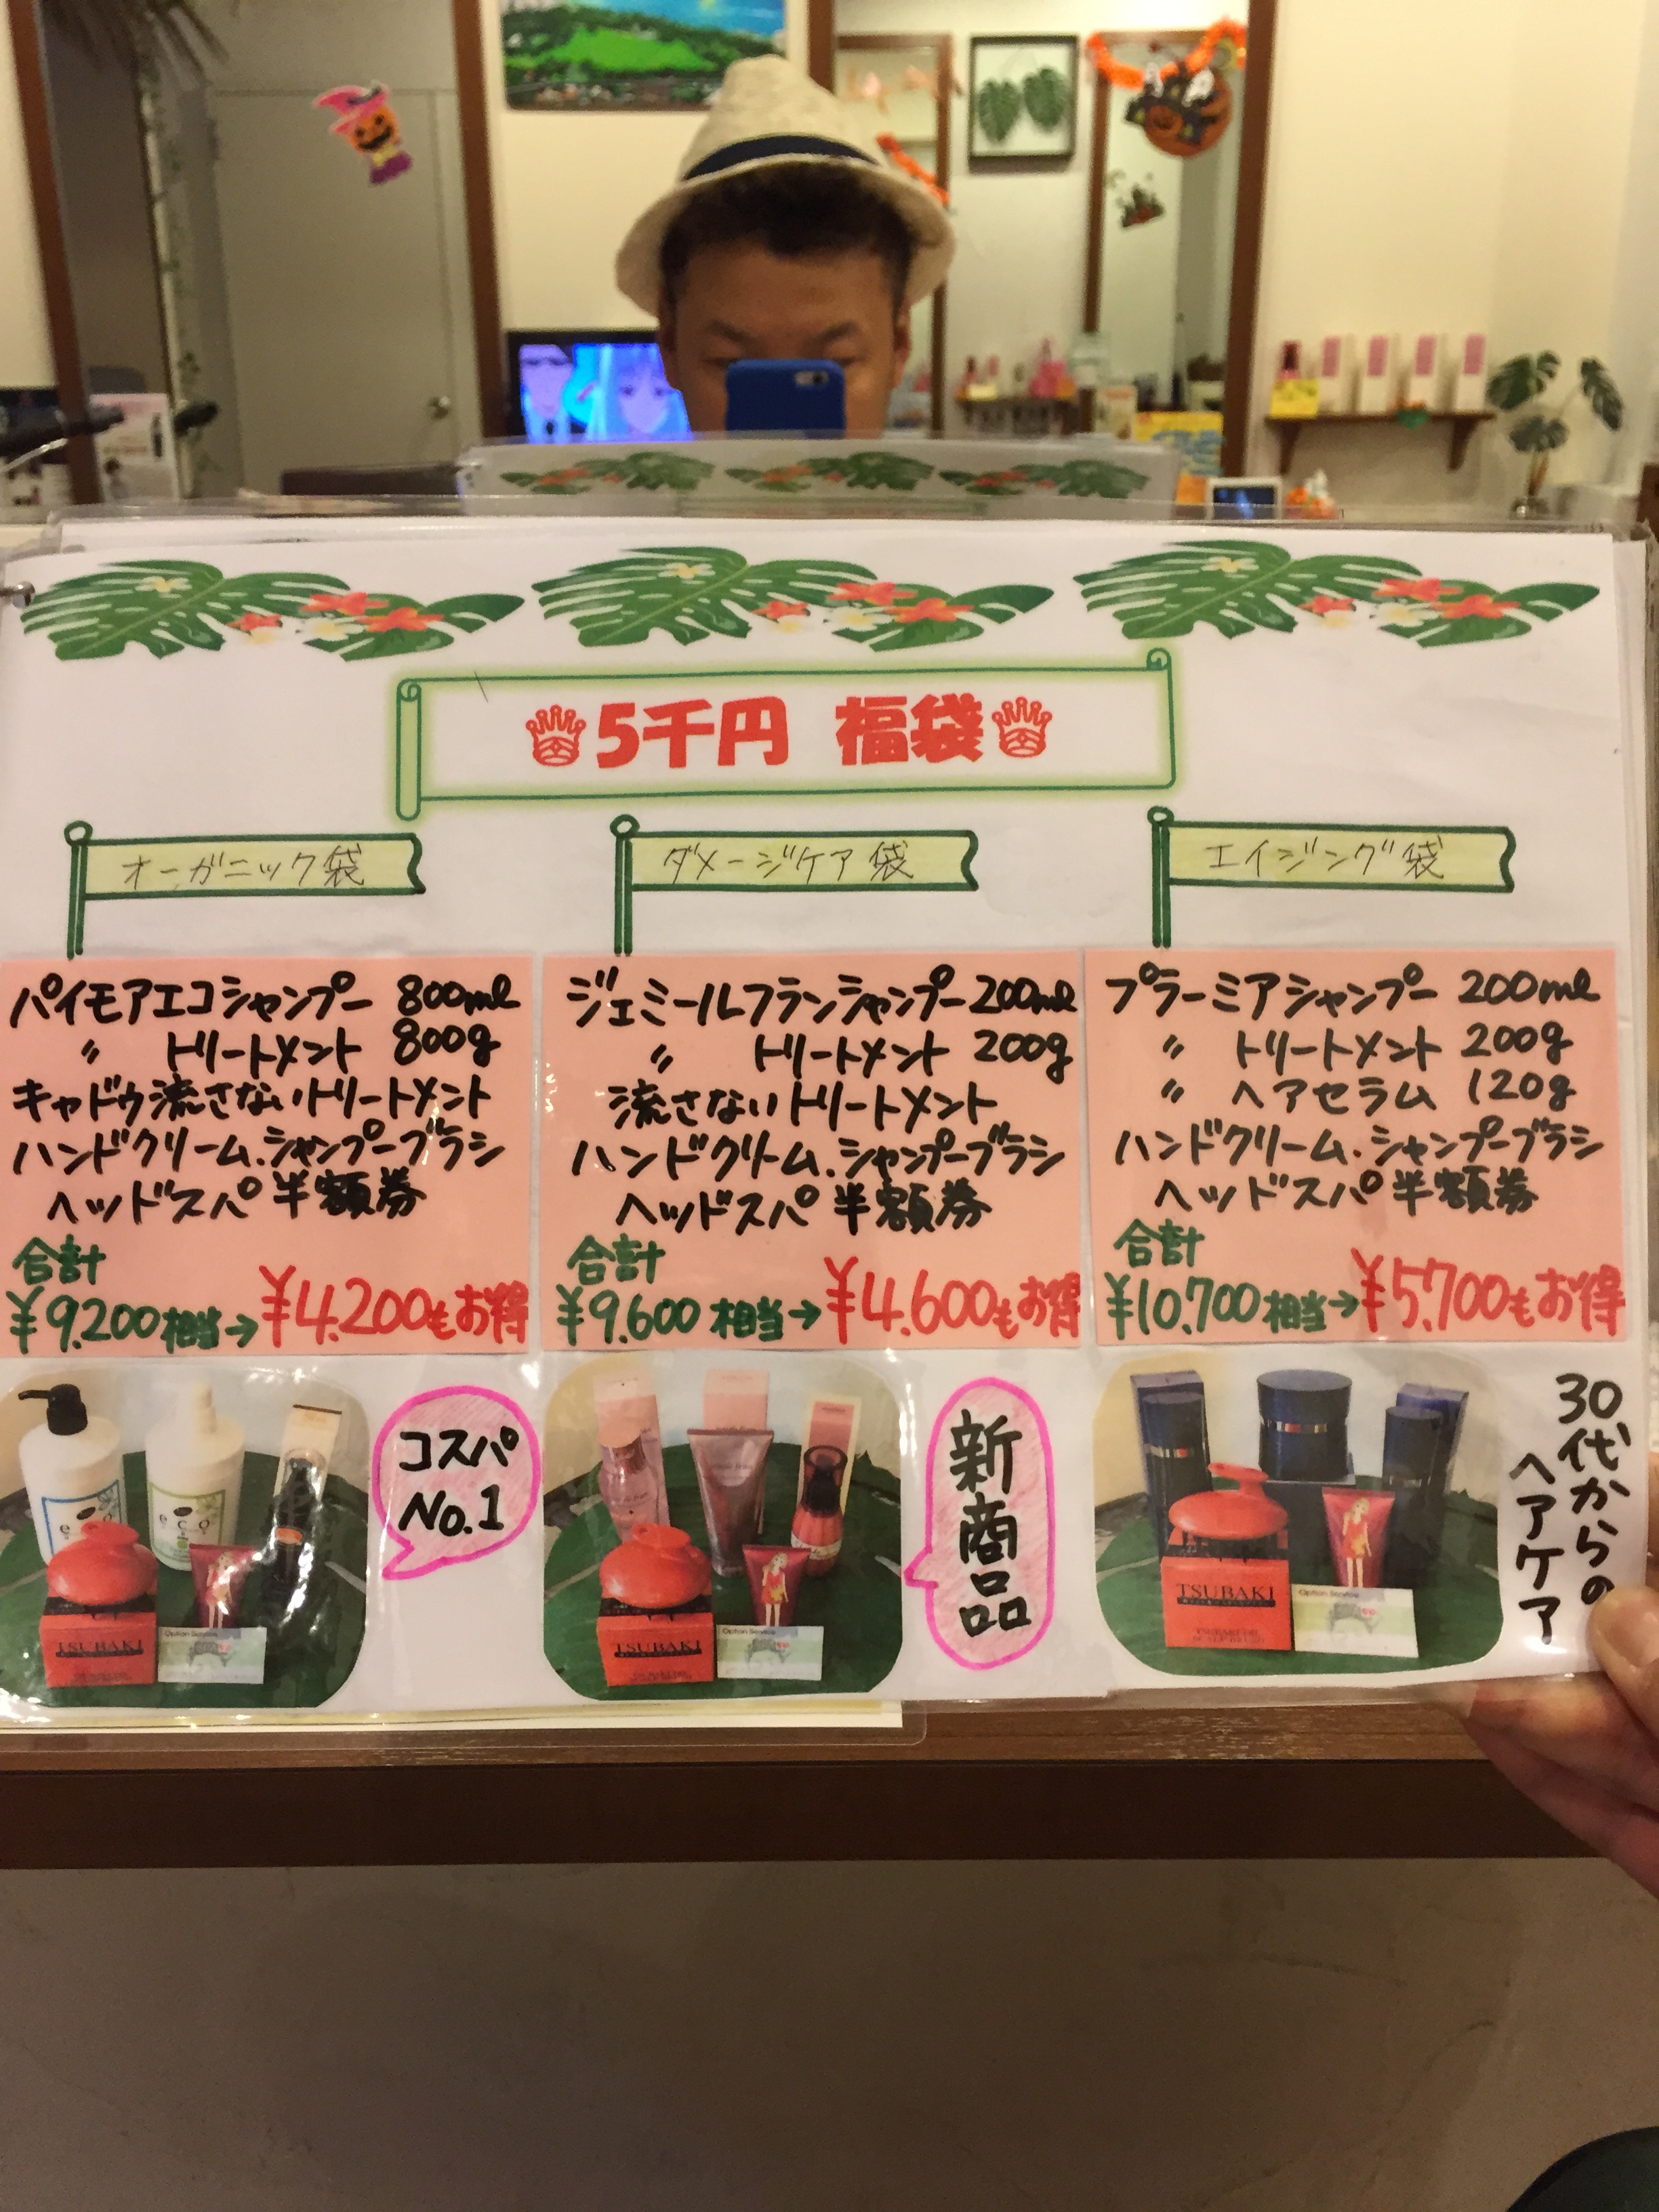 5千円 福袋
オーガニック袋
パイモアエコシャンプー 800ml
〃 トリートメント 800g
キャドゥ流さないトリートメント
ハンドクリーム.シャンプーブラシ
ヘッドスパ 半額券
合計
¥9.200相当→¥4.200もお得
コスパ
No.1
ダメージケア袋
ジェミールフランシャンプー200ml
〃 トリートメント 200g
流さないトリートメント
ハンドクリーム.シャンプーブラシ
ヘッドスパ 半額券
合計
¥9.600相当→¥4.600もお得
新商品
エイジング袋
プラーミアシャンプー 200ml
〃 トリートメント 200g
〃 ヘアセラム 120g
ハンドクリーム.シャンプーブラシ
ヘッドスパ 半額券
合計
¥10.700相当→¥5.700もお得
30代からの
ヘアケア
TSUBAKI
Option Service
TSUBAKI
Option Service
TSUBAKI
Option Service